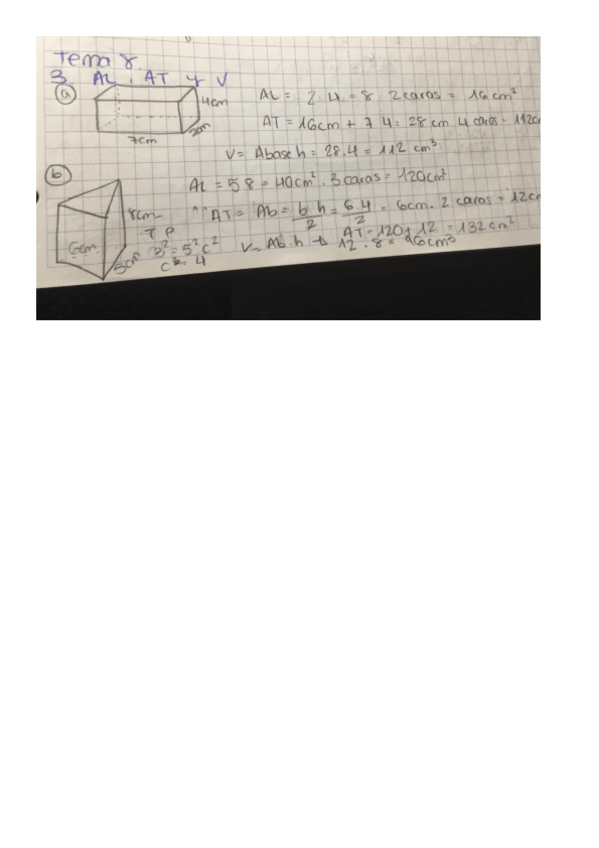 Tema 8.
3. AL, AT y V
a
4cm
2cm
7cm
AL = 2.4 = 8 . 2 caras = 16 cm²
AT = 16cm + 7 4 = 28 cm . 4 caras = 112cm
V = Abase h = 28.4 = 112 cm³
b
8cm
6cm
5cm
AL = 5 8 = 40cm² . 3 caras = 120cm²
AT = Ab = b.h/2 = 6.4/2 = 6cm . 2 caras = 12cm
AT = 120 + 12 = 132 cm²
T P
3² = 5² c²
c = 4
V = Ab.h → 12 . 8 = 96cm³